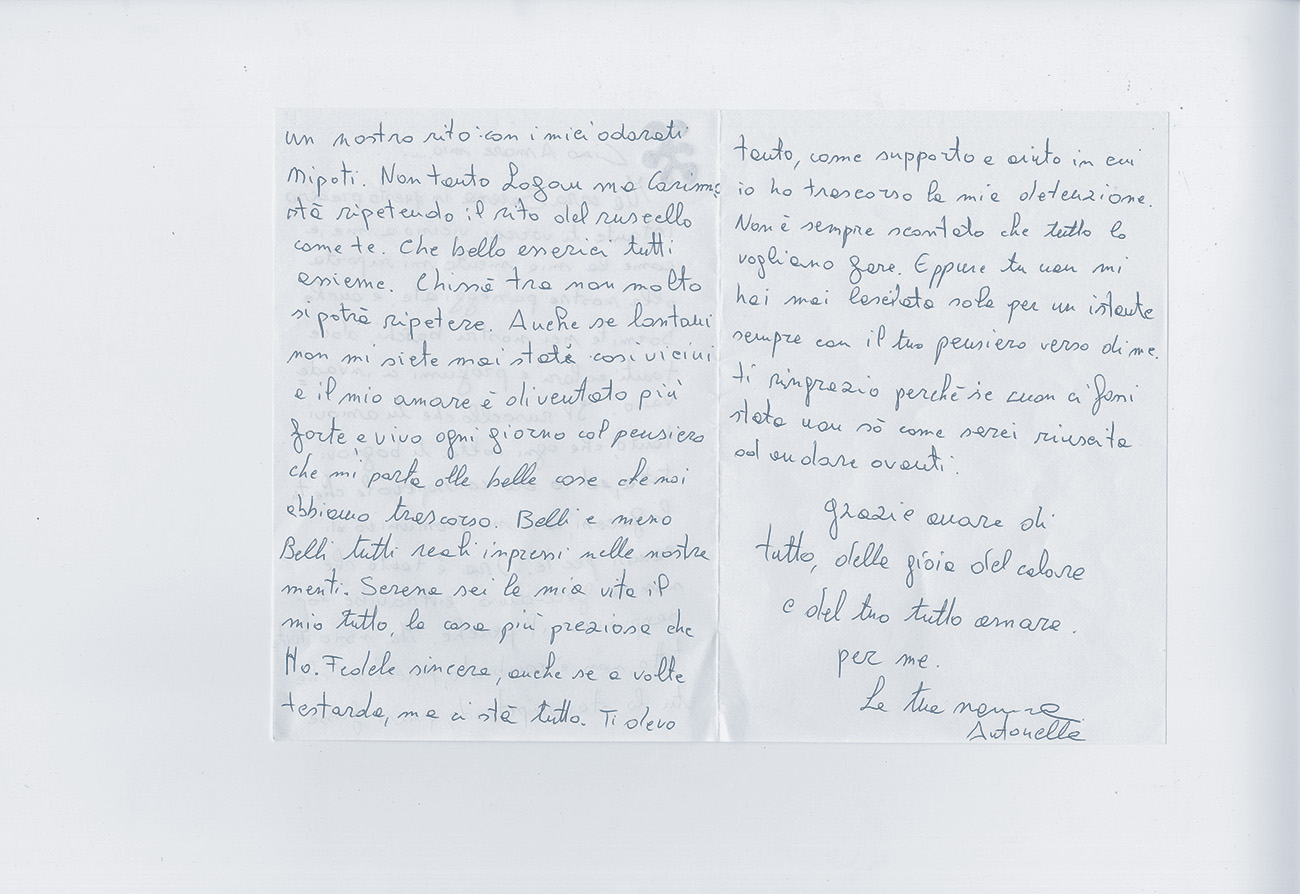 un nostro rito con i miei adorati
Nipoti. Non tanto Logan ma
stà ripetendo il rito del ruscello
come te. Che bello esserici tutti
assieme. Chissà tra non molto
si potrà ripetere. Anche se lontani
non mi siete mai stati così vicini
e il mio amare è diventato più
forte e vivo ogni giorno col pensiero
che mi porta alle belle cose che noi
abbiamo trascorso. Belli e meno
Belli tutti reali impressi nelle nostre
menti. Serena sei la mia vita il
mio tutto, la cosa più preziosa che
Ho. Fedele sincera, anche se a volte
testarda, ma ci stà tutto. Ti devo
tanto, come supporto e aiuto in cui
io ho trascorso la mia detenzione.
Non è sempre scontato che tutto lo
vogliano fare. Eppure tu non mi
hai mai lasciata sola per un istante
sempre con il tuo pensiero verso di me.
ti ringrazio perchè se non ci fossi
stata non sò come sarei riuscita
ad andare avanti.
grazie amore di
tutto, della gioia del calore
e del tuo tutto amare.
per me.
La tua mamma
Antonella